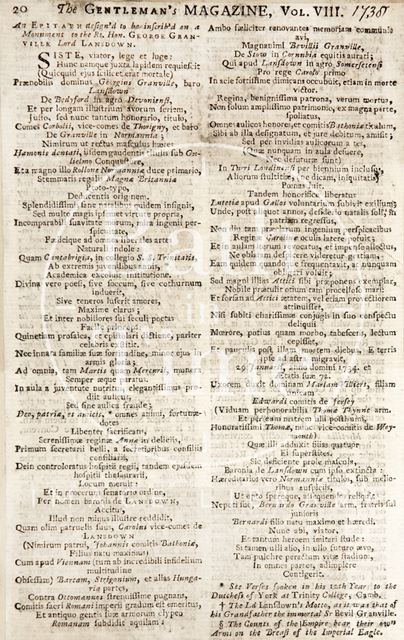 20 The GENTLEMAN's MAGAZINE, VOL. VIII. 1738
An EPITAPH design'd to be inscrib'd on a
Monument to the Rt. Hon. GEORGE GRAN-
VILLE Lord LANSDOWN.
SISTE, viator, lege et luge:
Hunc nempe juxta lapidem requiescit
(Quicquid ejus scilicet erat mortale)
Prænobilis dominus Georgius Granville, baro
Lansdown
De Bedeford in agro Devoniensi,
Et per longam illustrium avorum seriem,
Justo, sed nunc tantum honorario, titulo,
Comes Corboili, vice-comes de Thorigny, et baro
De Granville in Normannia;
Nimirum ut rectus masculus hæres
Hamonis dentati, iisdem gaudentis titulis sub Gu-
lielmo Conquest.
Et a magno illo Rollone Normanniæ duce primario,
Stemmatis regalis Magnæ Britanniæ
Proto-typo,
Deducentis originem.
Splendidissimi sane natalibus quidem insignis,
Sed multo magis ipse virtute propria,
Incomparabili suavitate morum, pari ingenii per-
spicuitate,
Fœliceque ad omnes liberales artes
Naturali indole:
Quam Cantabrigia, in collegio S. Trinitatis,
Ab extremis jam finibus annis,
Academica excoluit institutione.
Divina vero poesi, sive soccum, sive cothurnum
induerit,
Sive teneros luserit amores,
Maxime clarus;
Et inter nobiliores sui seculi poetas
Facile princeps:
Quinetiam prosaico, et epistolari dicendi, pariter
celebris.
Nec inna familiæ suæ fortitudine, minor ejus
animis:
Ad omnia, tam Martis quam Mercurii, munia
Semper æque paratus.
In aula a juventute nutritus, elegantissimus pro-
diit aulicus;
Sed sine aulica fraude;
Deo, patria, et amicis, omnes animi, fortunæ-
dotes
Libenter sacrificans.
Serenissimæ reginæ Annæ in deliciis,
Primum secretarii belli, a secretioribus consiliis
consiliarii,
Dein controloratus hospitii regii, tandem ejusdem
hospitii thesaurarii
Locum meruit:
Et in procerum senatorio ordine,
Per nomen baronis de LANSDOWN,
Accitus,
Illud non minus illustre reddidit,
Quam olim patruelis suus, Carolus vice-comes de
LANSDOWN
(Nimirum patrui, Johannis comitis Bathoniæ,
Filius natu maximus)
Cum apud Viennam (tum ab incredibili infidelium
multitudine
Obsessam) Barcam, Strigonium, et alias Hunga-
riæ partes,
Contra Ottomannos strenuissime pugnans,
Comitis sacri Romani imperii gradum est emeritus,
Et antiquo gentis suæ atrorum clypeo
Romanam subdidit aquilam:
Ambo scilicet renovantes memoriam communis
avi,
Magnanimi Bevillii Granville,
De Stow in Cornubia equitis aurati;
Qui apud Lansdown in agro Somersetensi
Pro rege Carolo primo
In acie fortissime dimicans occubuit, etiam in morte
victor.
Regina, benignissima patrona, verum mortua,
Non solum amplissimo patrimonio, ex magna parte,
spoliatus,
Omnes aulicos honores, et comitis Bathoniæ titulum,
Sibi ab illa designatum, et jure debitum, amisit;
Sed per invidias aulicorum artes
(Quæ nunquam in aula desiere,
nec desituræ sunt)
In Turri Londinensi per biennium inclusus,
Aliorum stultitiæ, ne dicam, iniquitatis,
Pœnas luit.
Tandem honorifice liberatus
Lutetiæ apud Gallos voluntarium subivit exilium;
Unde, post aliquot annos, desiderio natalis soli, in
patriam regressus,
Non diu tam magnum ingenium perspicacibus
Reginæ Carolinæ oculis latere potuit;
Et in aulam iterum vocatus, et impense dilectus,
Ne obliviam desereret valeret gratiam,
Eam quidem quando eque frequentavit, at nunquam
oblatrari voluit;
Sed magni illius Attici sibi præponens exemplar,
Nobile præstulit otium tam procellosi maris
Et forsan ad Attici ætatem, vel etiam provectiorem
attinuisset,
Nisi subiti charissimæ conjugis in suo conspectu
deliquii
Mœrore, potius quam morbo, tabescens, lectum
cepisset,
Et pauculis post illius mortem diebus. E terris
ipse ad astra migravit,
29 Januarii, anno domini 1734. et
ætatis suæ 72.
Uxorem duxit dominam Mariam Villiers, filiam
unicam
Edwardi comitis de Jersey
(Viduam perhonorabilis Thomæ Thynne arm.
Et perillustrem matrem illi posthumi,
Honoratissimi Thomæ, nunc vice-comitis de Wey-
mouth)
Quæ illi adduxit filias quatuor,
Et superstites.
Sic deficiente prole mascula,
Baronia de Lansdown cum ipso extincta:
Hæreditario vero Normanniæ titulos, sub melio-
ribus auspiciis,
Ut expto spereque, atiquando reliquit
Nepoti suo, Bernardo Granville arm. fratris sui
junioris
Bernardi filio natu maximo et hæredi.
Nunc abi, viator,
Et tantum heroem imitari stude:
Si etiam ulli alio, in ullo futuro ævo,
Tam pulchre peractum vitæ stadium,
In omnes partes, adimplere
Contigerit.
* See Verses spoken in his 12th Year to the
Dutchess of York at Trinity College, Camb.
† The Ld Lansdown's Motto, as it was that of
his Grandfather the immortal Sr Bevil Granville.
§ The Counts of the Empire bear their own
Arms on the Breast of the Imperial Eagle.